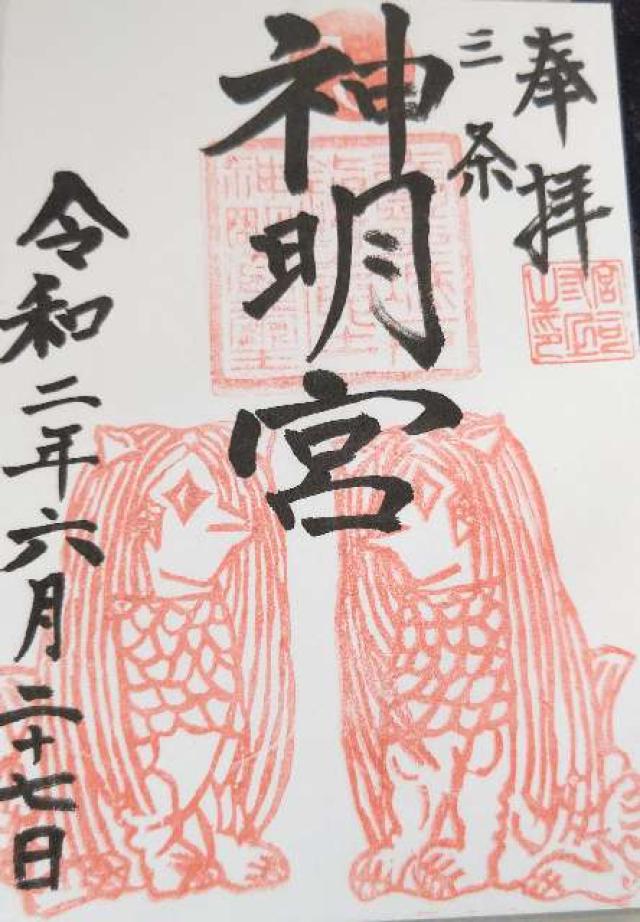 奉拝
三条
神明宮
令和二年六月二十七日